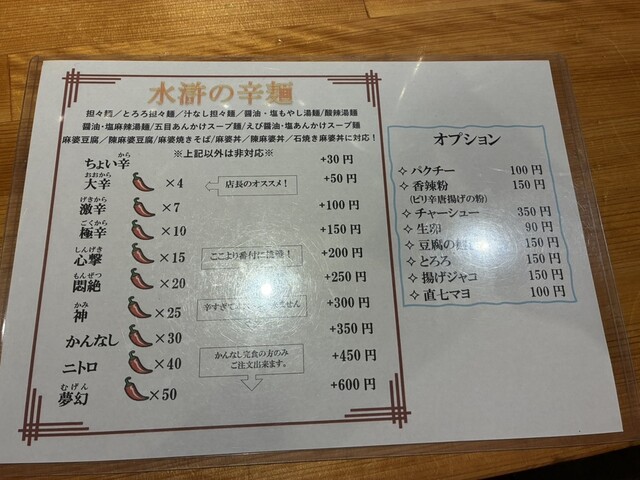 水滸の辛麺
担々麺／とろろ担々麺／汁なし担々麺／醤油・塩もやし湯麺/酸辣湯麺
醤油・塩麻辣湯麺／五目あんかけスープ麺／えび醤油・塩あんかけスープ麺
麻婆豆腐／陳麻婆豆腐/麻婆焼きそば／麻婆丼／陳麻婆丼／石焼き麻婆丼に対応！
※上記以外は非対応※
から
ちょい辛 +30円
おおから
大辛 ×4 店長のオススメ！ +50円
げきから
激辛 ×7 +100円
ごくから
極辛 ×10 +150円
しんげき
心撃 ×15 ここより番付に +200円
もんぜつ
悶絶 ×20 +250円
かみ
神 ×25 辛すぎて +300円
かんなし ×30 +350円
ニトロ ×40 かんなし完食の方のみ +450円
ご注文出来ます。
むげん
夢幻 ×50 +600円
オプション
✧ パクチー 100円
✧ 香辣粉 150円
(ピリ辛唐揚げの粉)
✧ チャーシュー 350円
✧ 生卵 90円
✧ 豆腐の 150円
✧ とろろ 150円
✧ 揚げジャコ 150円
✧ 直七マヨ 100円